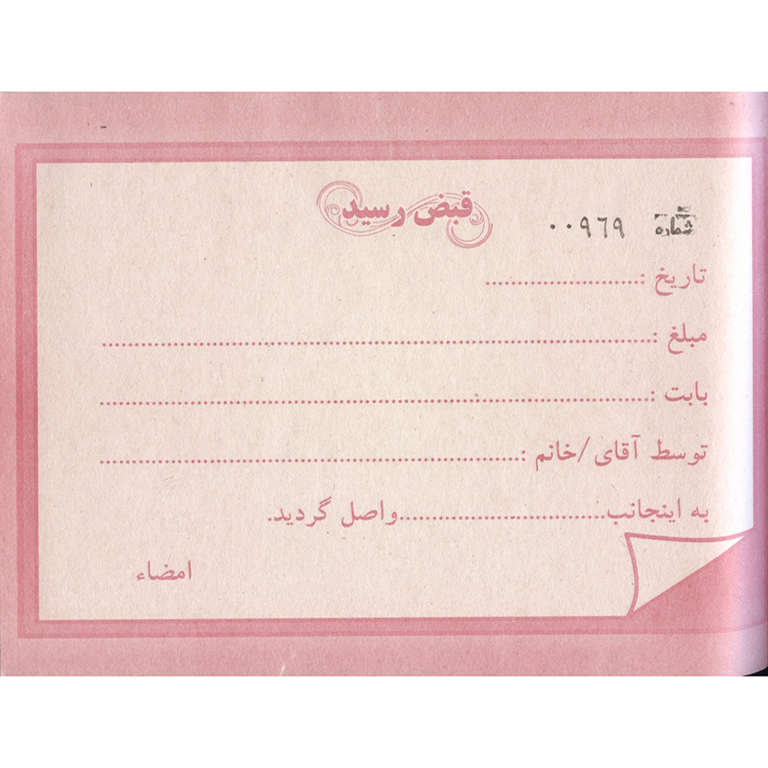 قبض رسید
شماره ۰۰۹۶۹
تاریخ :........................
مبلغ :................................................................................
بابت :................................................................................
توسط آقای/خانم :............................................................
به اینجانب..............................واصل گردید.
امضاء